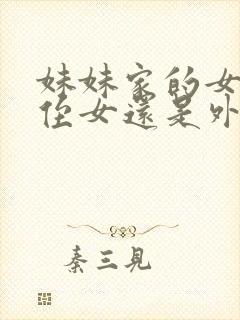 妹妹家的女
侄女還是外
秦三見